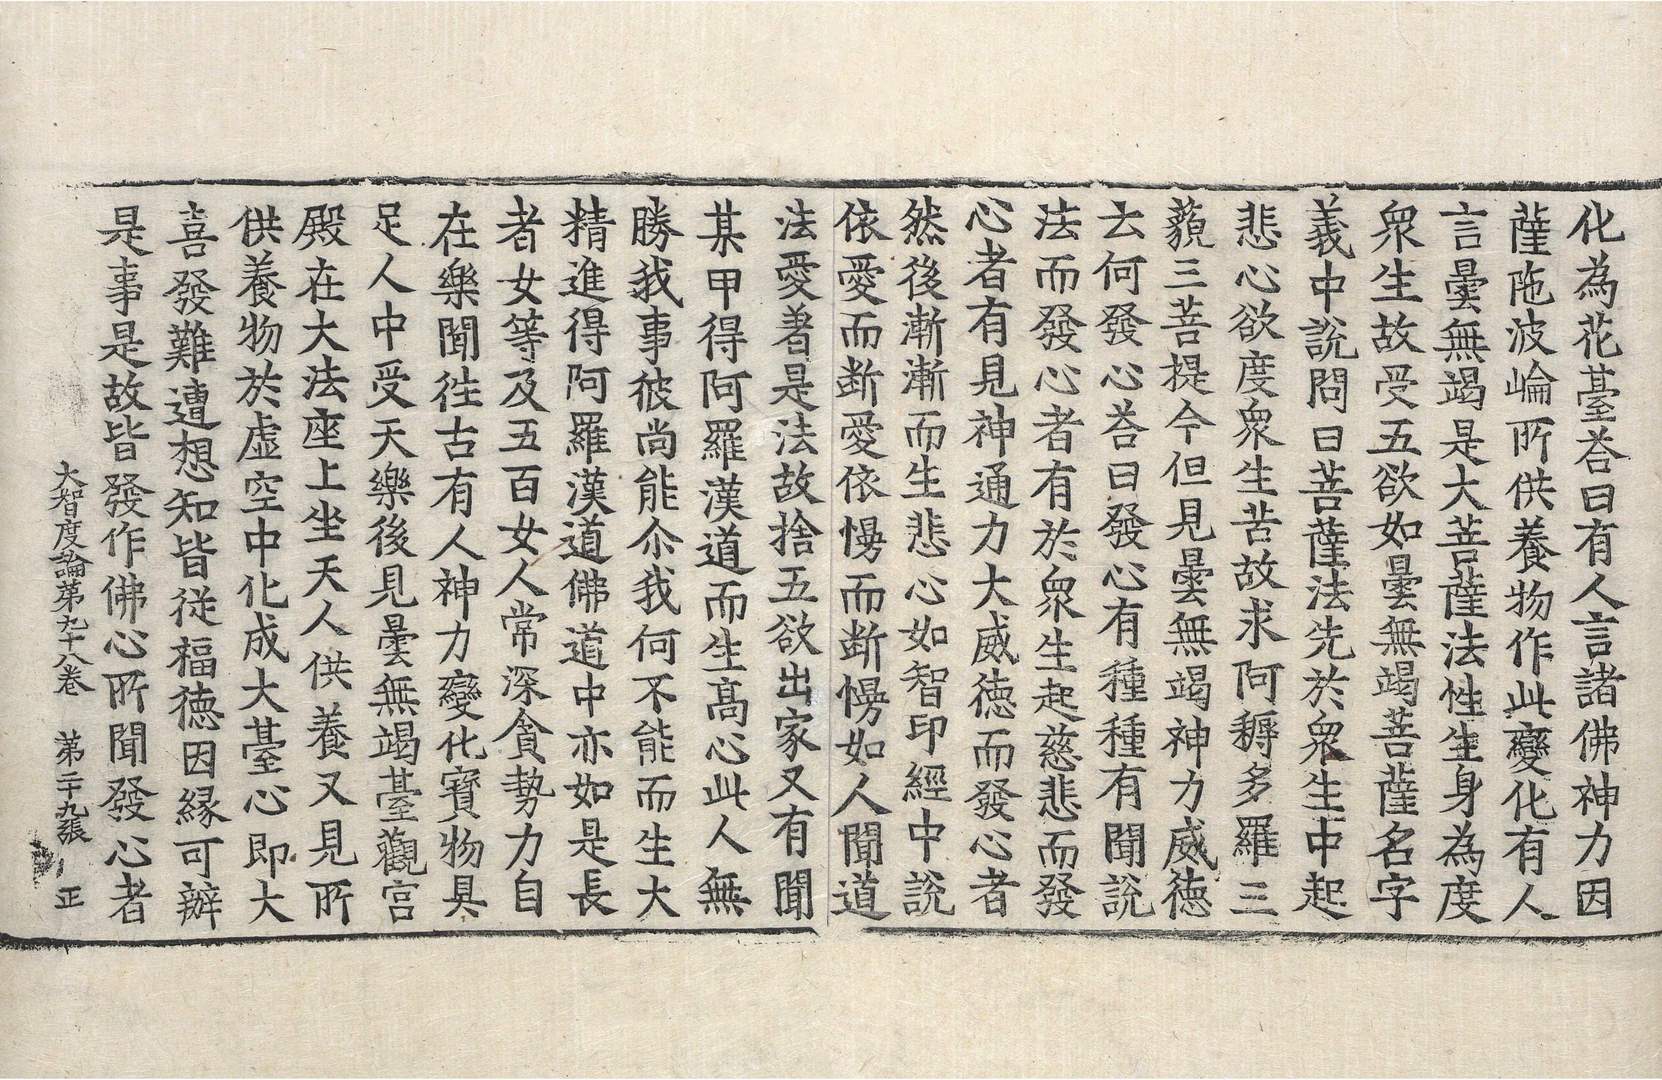 化為花臺荅曰有人言諸佛神力因
薩陁波崘所供養物作此變化有人
言曇無竭是大菩薩法性生身為度
衆生故受五欲如曇無竭菩薩名字
義中說問曰菩薩法先於衆生中起
悲心欲度衆生苦故求阿耨多羅三
藐三菩提今但見曇無竭神力威德
云何發心荅曰發心有種種有聞說
法而發心者有於衆生起慈悲而發
心者有見神通力大威德而發心者
然後漸漸而生悲心如智印經中說
依愛而断愛依慢而断慢如人聞道
法愛著是法故捨五欲出家又有聞
某甲得阿羅漢道而生髙心此人無
勝我事彼尚能尒我何不能而生大
精進得阿羅漢道佛道中亦如是長
者女等及五百女人常深貪勢力自
在樂聞徃古有人神力變化寶物具
足人中受天樂後見曇無竭臺觀宮
殿在大法座上坐天人供養又見所
供養物於虛空中化成大臺心即大
喜發難遭想知皆從福德因緣可辦
是事是故皆發作佛心所聞發心者
大智度論第九十八卷 第二十九張 正